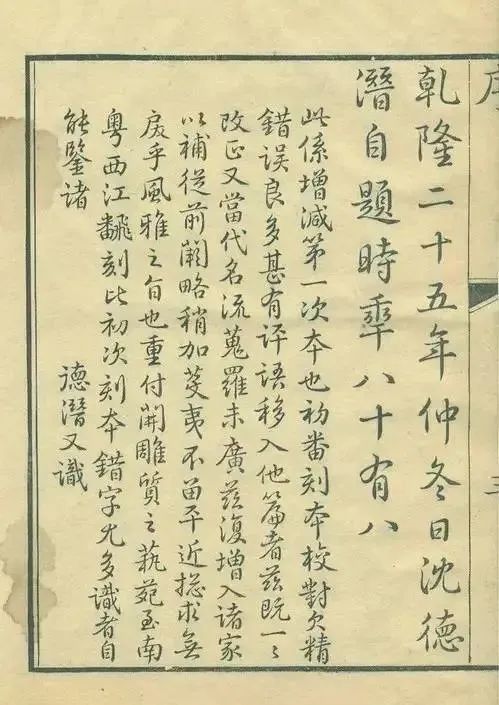 序
三
乾隆二十五年仲冬日沈德
潛自題時年八十有八
此係增減第一次本也初番刻本校對欠精
錯誤良多甚有評語移入他篇者茲既一〻
改正又當代名流蒐羅未廣茲復增入諸家
以補從前闕略稍加芟夷不留平近揔求無
戾乎風雅之旨也重付開雕質之藝苑至南
粤西江飜刻比初次刻本錯字尤多識者自
能鑒諸
德潛又識